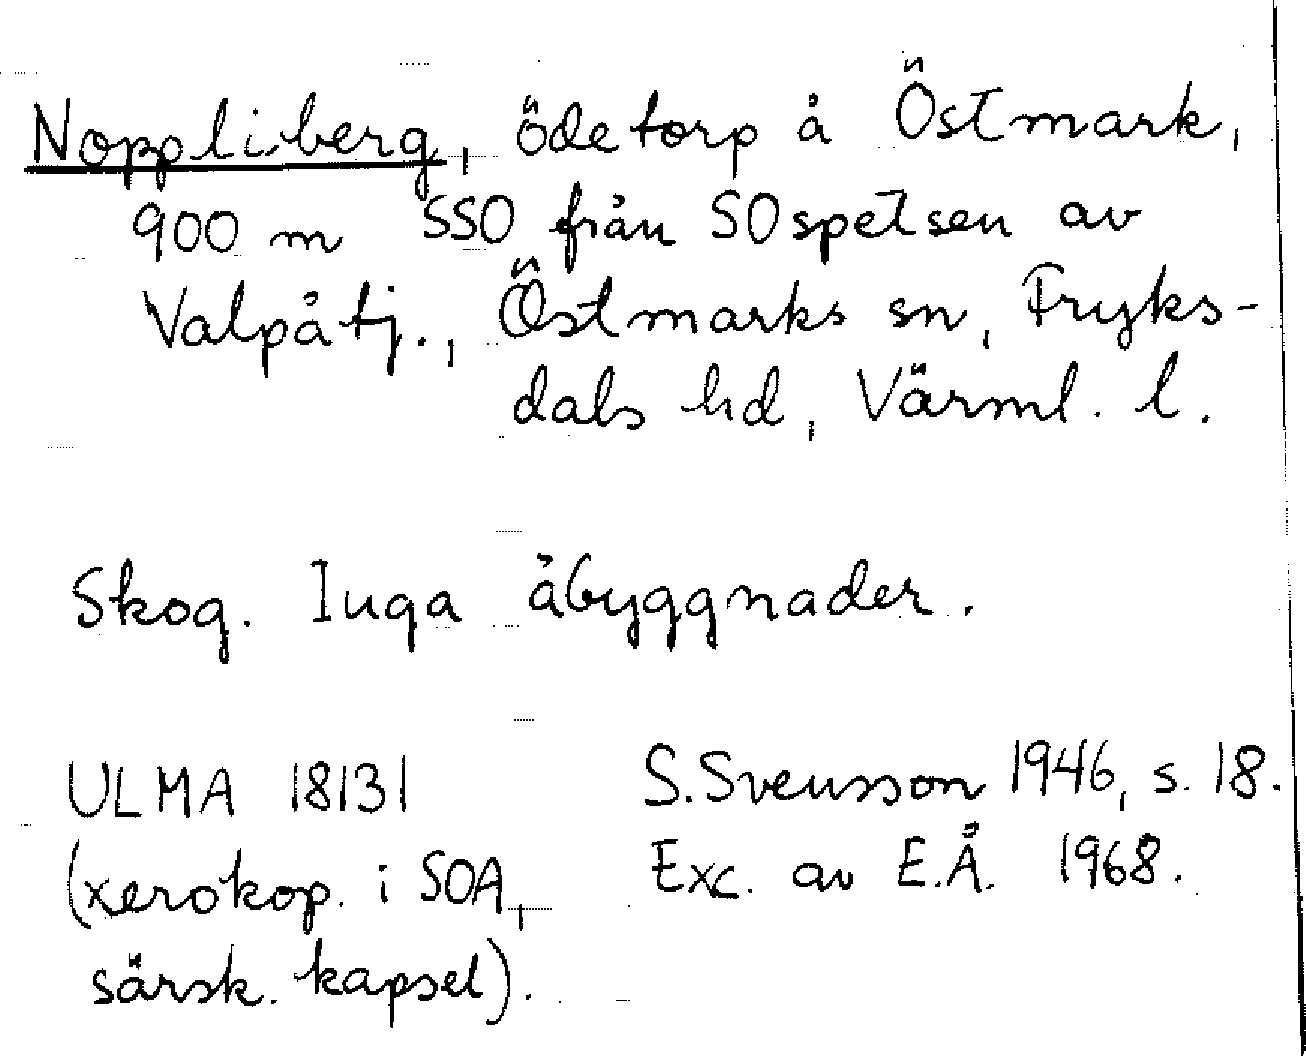 Noppliberg, ödetorp å Östmark,
900 m SSO från SOspetsen av
Valpåtj., Östmarks sn, Fryks-
dals hd, Värml. l.
Skog. Inga åbyggnader.
ULMA 18131
(xerokop. i SOA,
särsk. kapsel).
S. Svensson 1946, s. 18.
Exc. av E.Å. 1968.